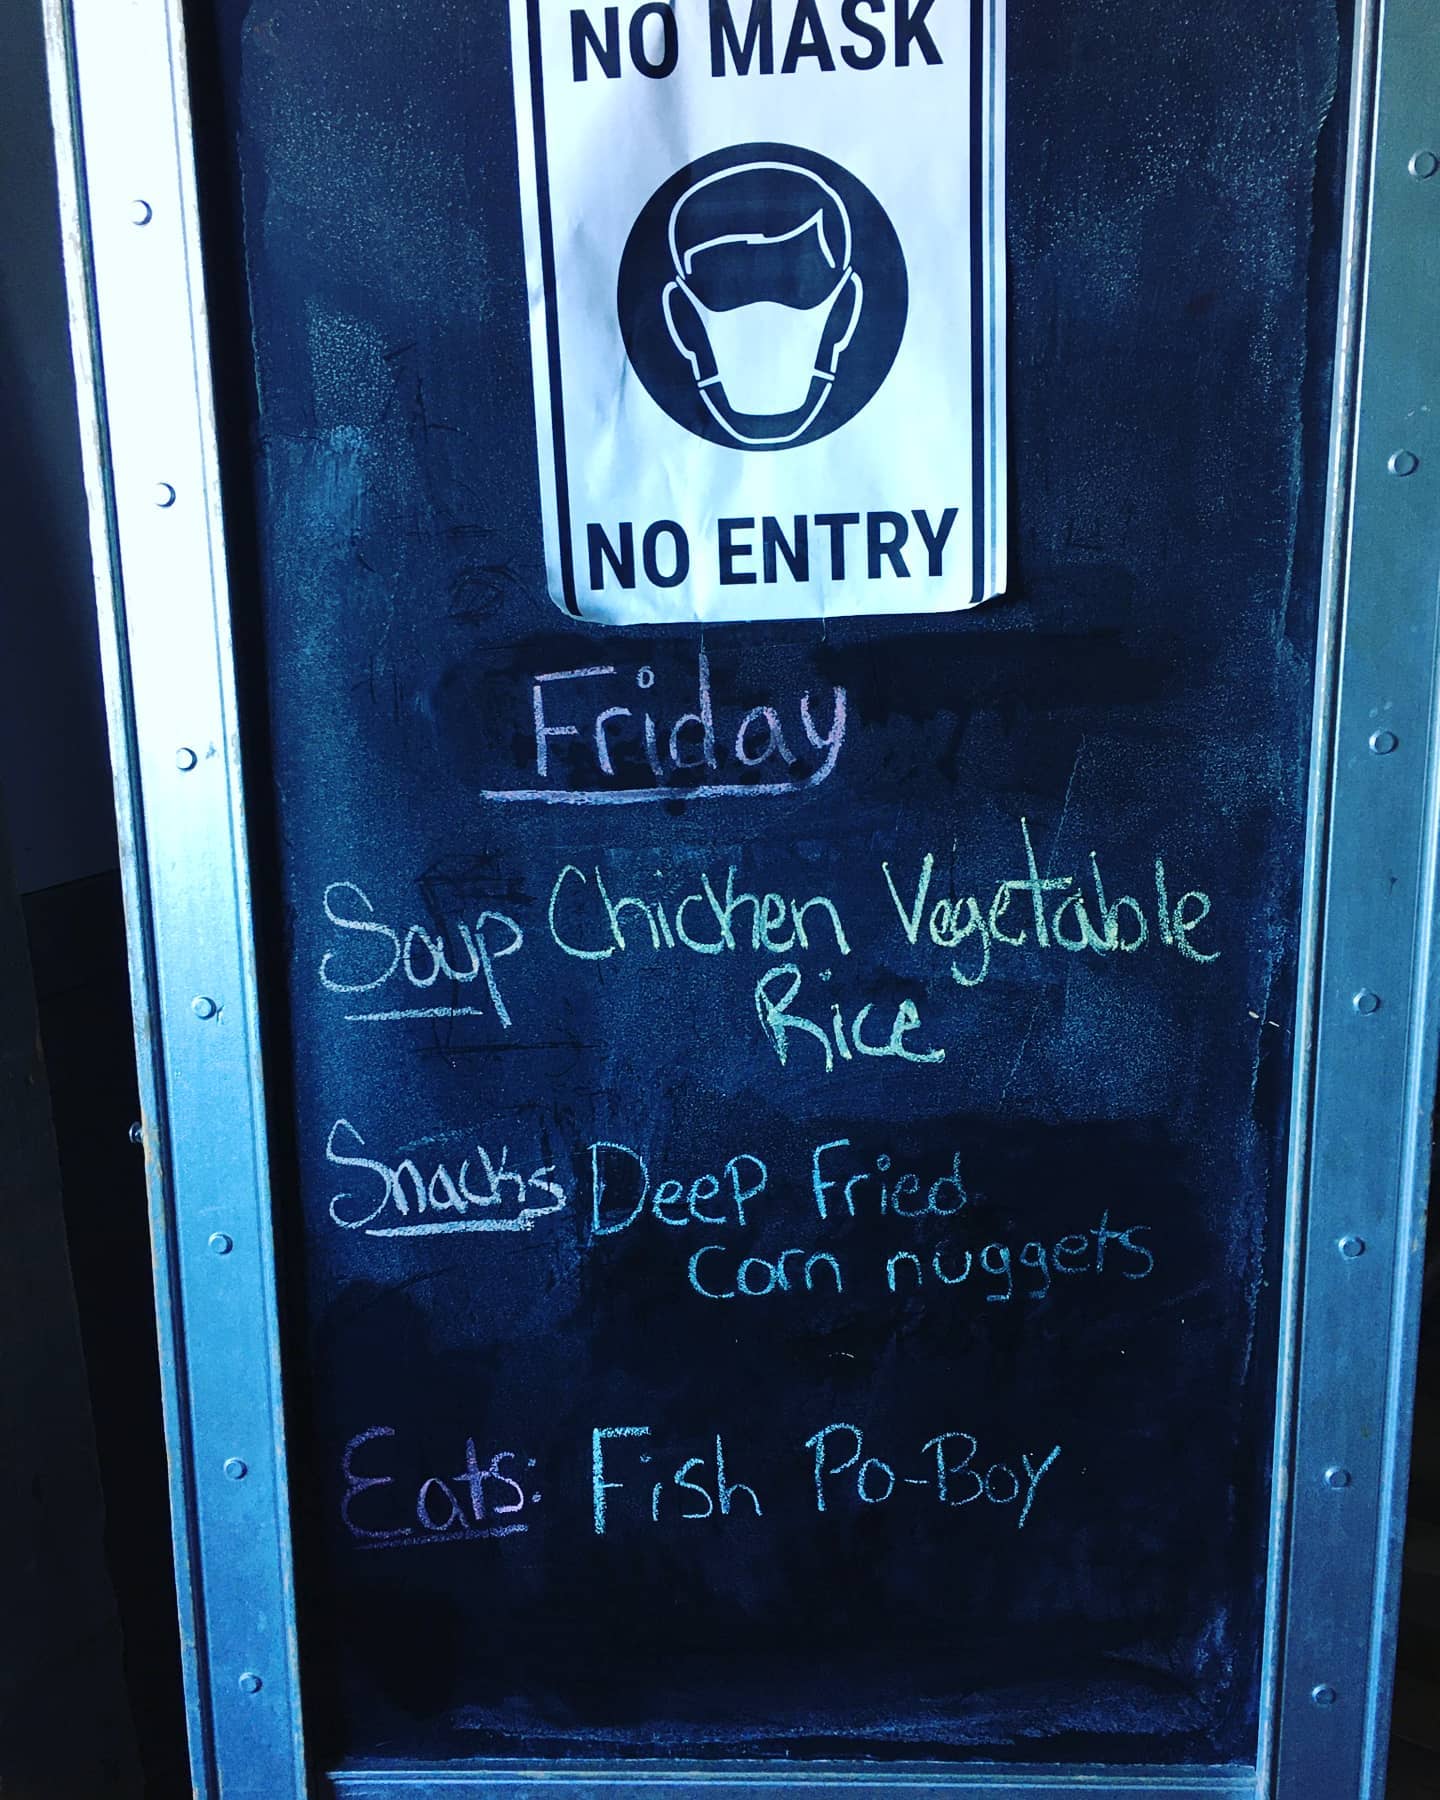 NO MASK
NO ENTRY
Friday
Soup Chicken Vegetable
Rice
Snacks Deep Fried
corn nuggets
Eats: Fish Po-Boy